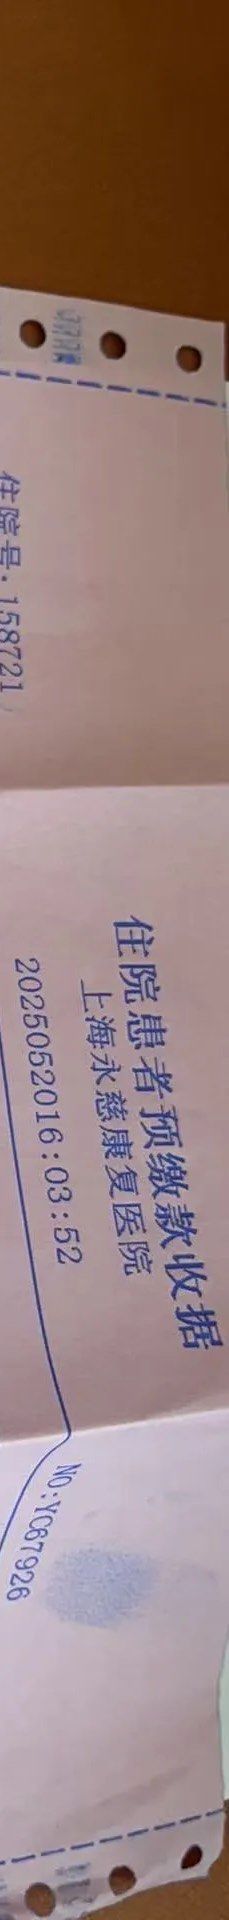 住院患者预缴款收据
上海永慈康复医院
2025052016:03:52
NO:YC67926
住院号:158721